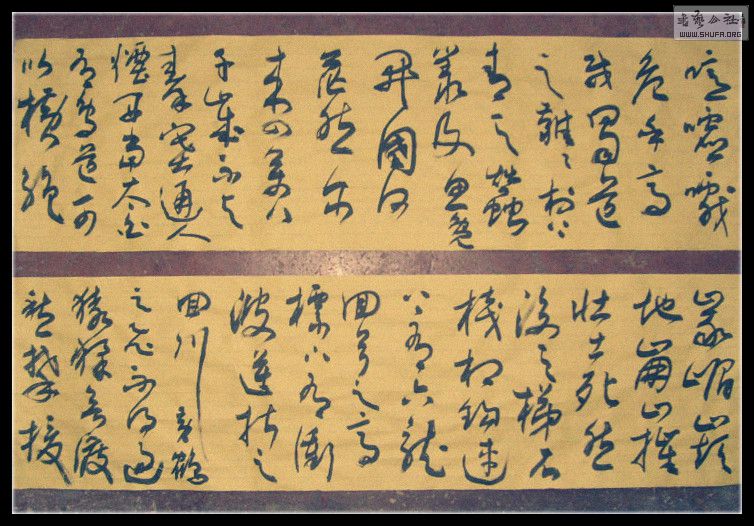 書藝公社
WWW.SHUFA.ORG
噫嘘戲
危乎高
哉蜀道
之難〻於上
青天蠶
叢及魚鳧
開國何
茫然尔
来四萬八
千歲不与
秦塞通人
煙西當太白
有鳥道可
以横絶
峨嵋巔
地崩山摧
壯士死然
後天梯石
棧相鉤連
上有六龍
回日之高
標下有衝
波逆折之
回川黄鶴
之飛不得過
猿猱欲度
愁攀援